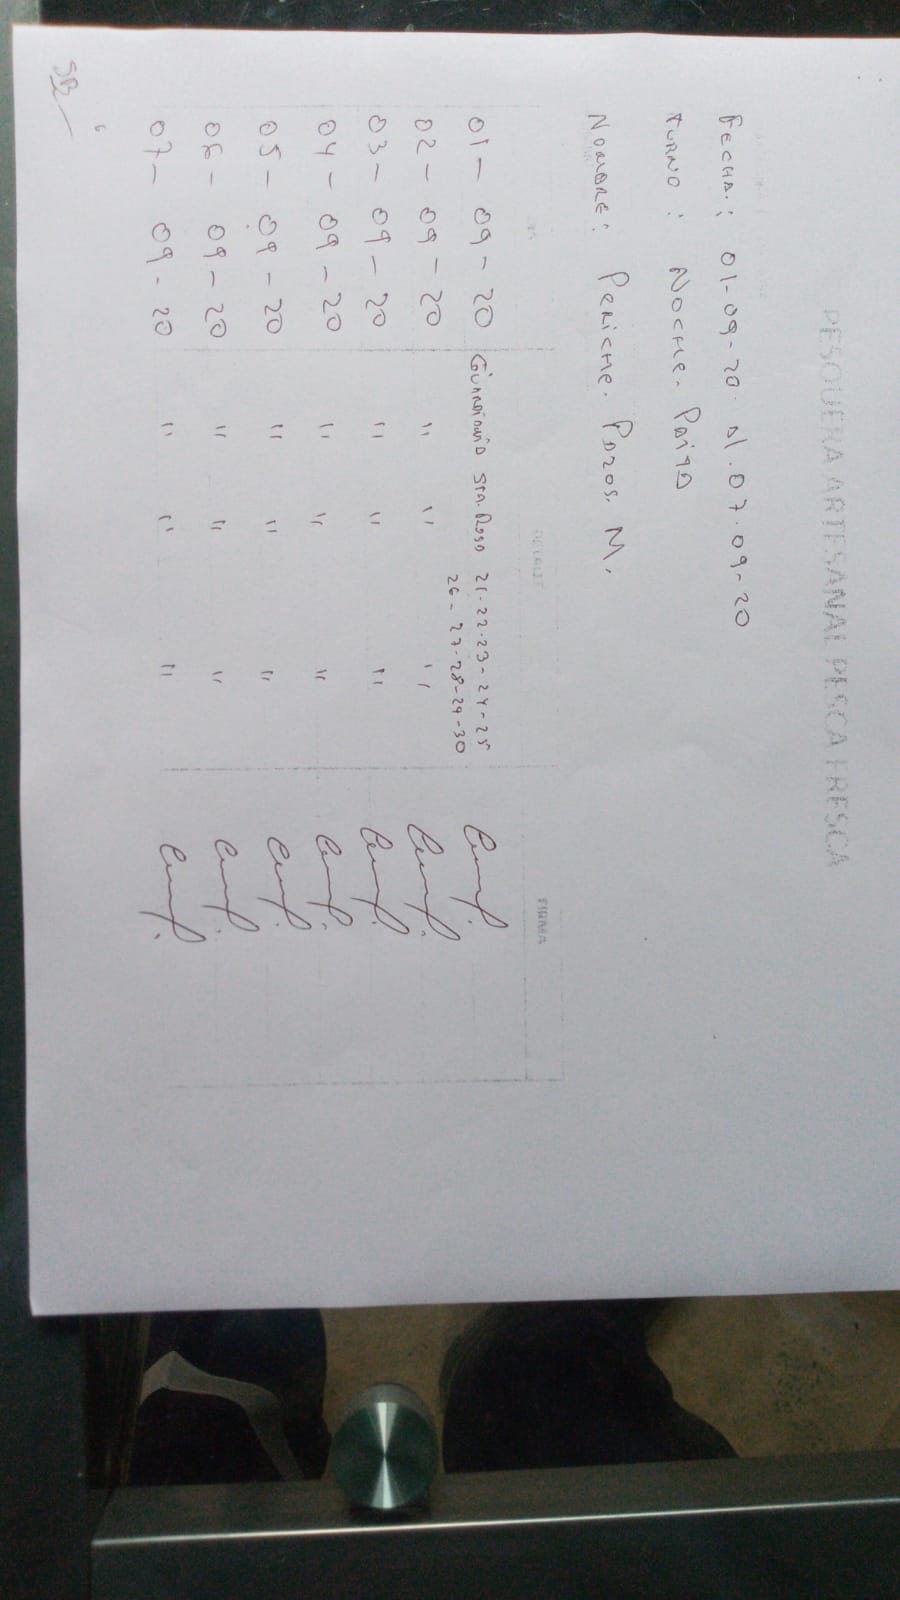 PESQUERA ARTESANAL PESCA FRESCA
FECHA.: 01-09-20. Al. 07.09-20
TURNO: NOCHE. PAITA
NOMBRE: PERICHE. PAZOS. M.
DETALLE FIRMA
01- 09-20 Guardianía Sta. Rosa 21-22-23-24-25
26-27-28-29-30
02-09-20 " " "
03-09-20 " " "
04-09-20 " " "
05-09-20 " " "
06-09-20 " " "
07-09-20 " " "